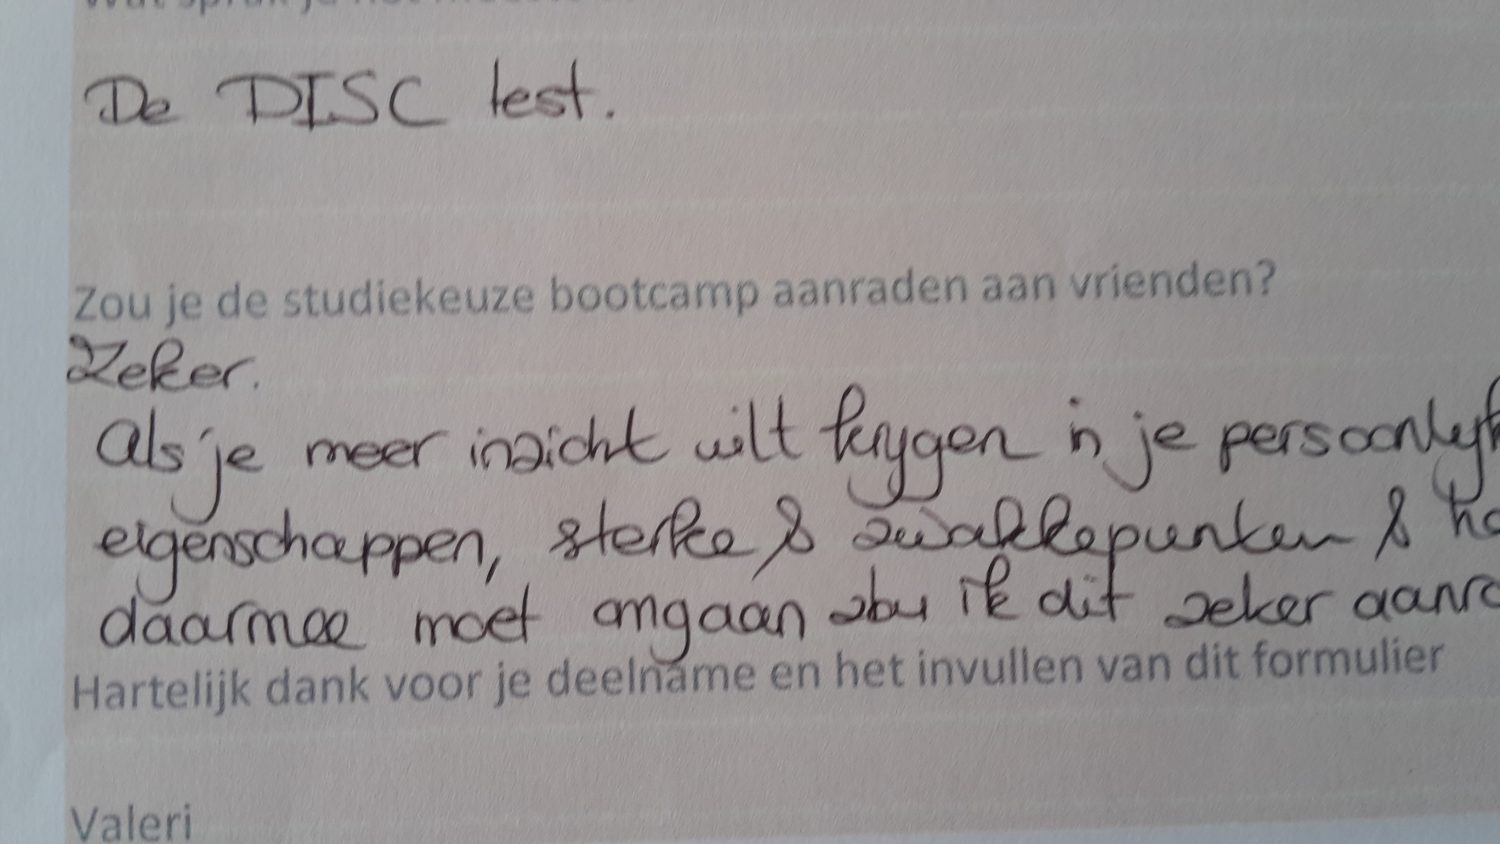 Wat sprak je het meeste
De DISC test.
Zou je de studiekeuze bootcamp aanraden aan vrienden?
Zeker.
Als je meer inzicht wilt krijgen in je persoonlijk
eigenschappen, sterke & zwakkepunten & ho
daarmee moet omgaan zou ik dit zeker aanra
Hartelijk dank voor je deelname en het invullen van dit formulier
Valeri